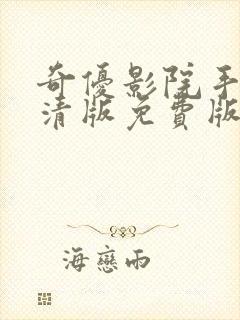 奇優影院手
清版免費版
海戀雨